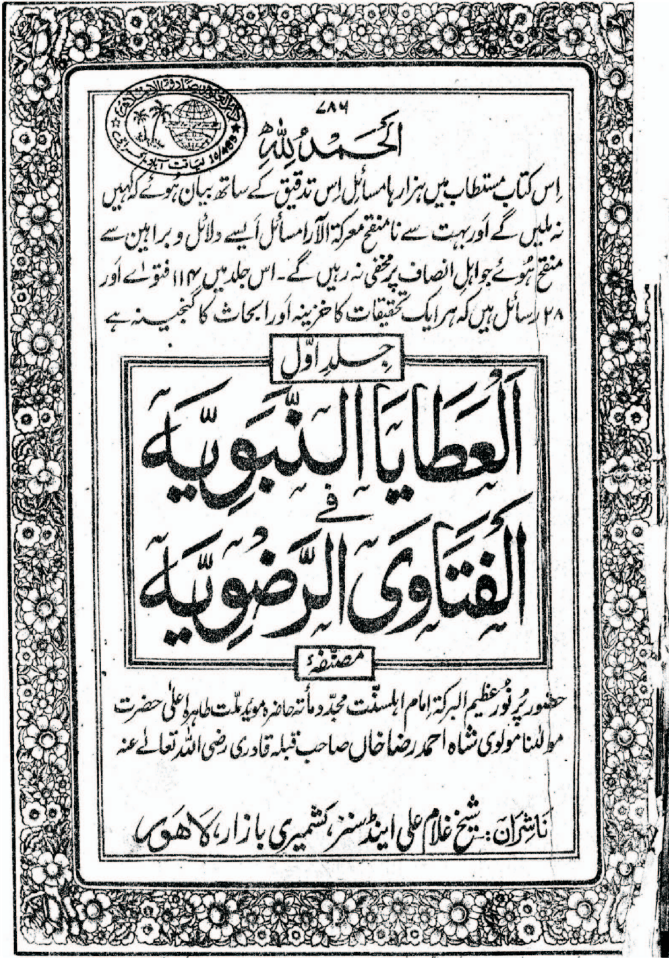 ۷۸۶
الحمد للہ
اِس کتاب مستطاب میں ہزارہا مسائل اِس تدقیق کے ساتھ بیان ہوئے کہ کہیں
نہ ملیں گے اور بہت سے نامنقح معرکۃ الآرا مسائل ایسے دلائل و براہین سے
منقح ہُوئے جو اہلِ انصاف پر مخفی نہ رہیں گے۔ اس جلد میں ۱۱۴ فتوے اور
۲۸ رسائل ہیں کہ ہر ایک تحقیقات کا خزینہ اور ابحاث کا گنجینہ ہے
جلدِ اوّل
اَلْعَطَایَا النَّبَوِیَّہ
فِی
الْفَتَاوَی الرَّضَوِیَّہ
مصنّفۂ
حضور پُر نور عظیم البرکۃ اِمام اہلسنّت مجدّد مأتہ حاضرہ مؤید ملّت طاہرہ اعلیٰ حضرت
مولٰنا مولوی شاہ احمد رضا خاں صاحب قبلہ قادری رضی اللہ تعالےٰ عنہ
ناشران:۔ شیخ غلام علی اینڈ سنز، کشمیری بازار، لاھور